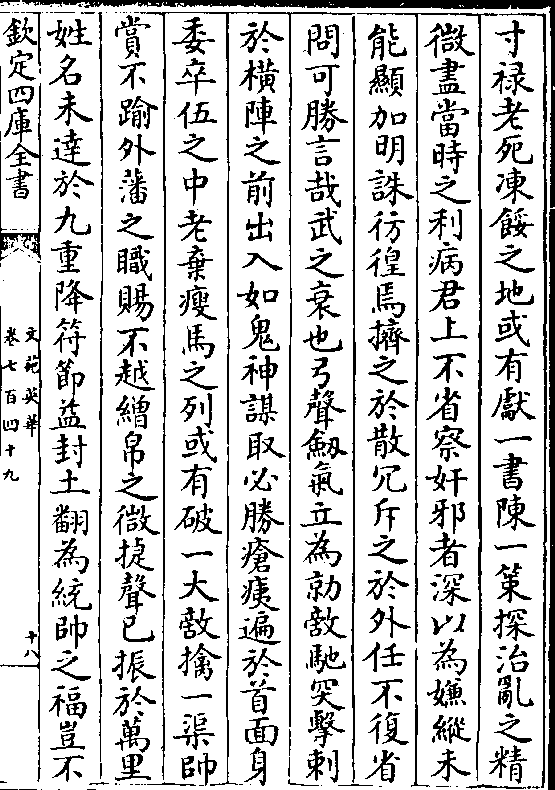 寸禄老死凍餒之地或有獻一書陳一策探治亂之精
微盡當時之利病君上不省察奸邪者深以為嫌縱未
能顯加明誅彷徨焉擠之於散冗斥之於外任不復省
問可勝言哉武之衰也弓聲劒氣立為勍敵馳突擊刺
於橫陣之前出入如鬼神謀取必勝瘡痍遍於首面身
委卒伍之中老棄瘦馬之列或有破一大敵擒一渠帥
賞不踰外藩之職賜不越繒帛之微捷聲已振於萬里
姓名未逹於九重降符節益封土翻為統帥之福豈不
欽定四庫全書
文苑英華
卷七百四十九
十八